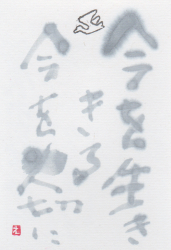 今を生き
きる
今を大切に